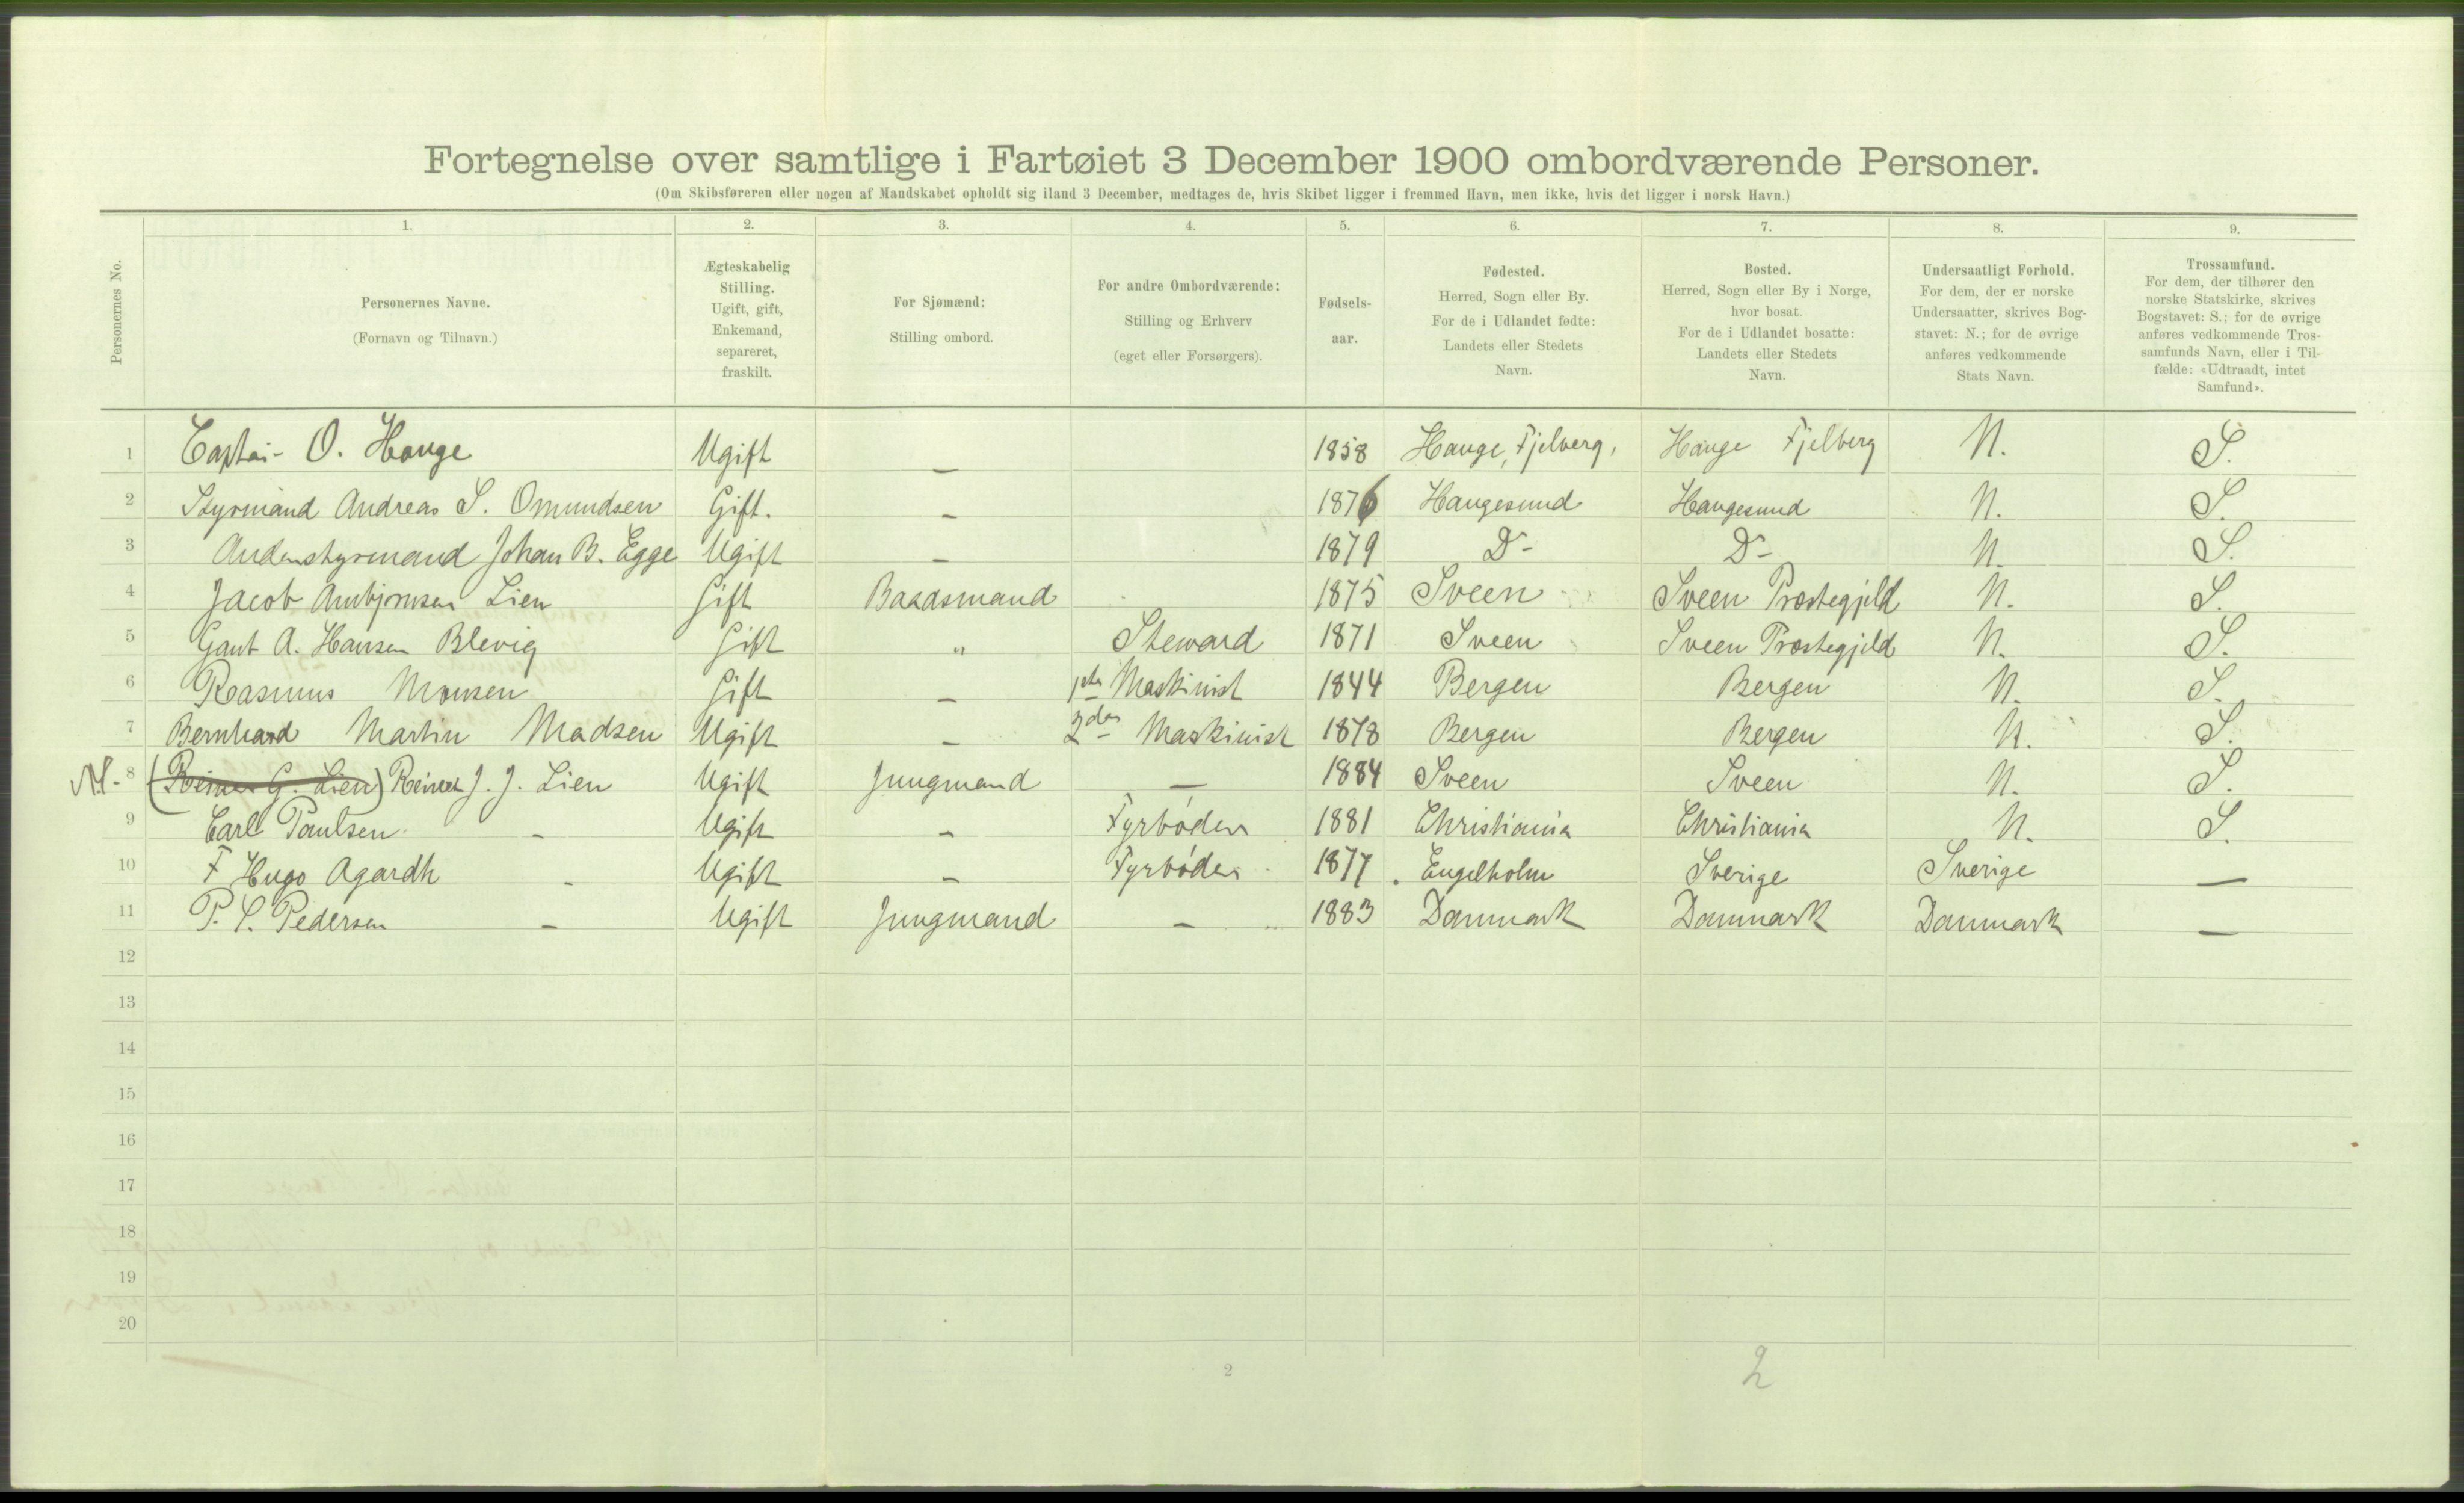 Fortegnelse over samtlige i Fartøiet 3 December 1900 ombordværende Personer.
(Om Skibsføreren eller nogen af Mandskabet opholdt sig iland 3 December, medtages de, hvis Skibet ligger i fremmed Havn, men ikke, hvis det ligger i norsk Havn.)
Personernes No.
1.
Personernes Navne.
(Fornavn og Tilnavn.)
2.
Ægteskabelig
Stilling.
Ugift, gift,
Enkemand,
separeret,
fraskilt.
3.
For Sjømænd:
Stilling ombord.
4.
For andre Ombordværende:
Stilling og Erhverv
(eget eller Forsørgers).
5.
Fødsels-
aar.
6.
Fødested.
Herred, Sogn eller By.
For de i Udlandet fødte:
Landets eller Stedets
Navn.
7.
Bosted.
Herred, Sogn eller By i Norge,
hvor bosat.
For de i Udlandet bosatte:
Landets eller Stedets
Navn.
8.
Undersaatligt Forhold.
For dem, der er norske
Undersaatter, skrives Bog-
stavet: N.; for de øvrige
anføres vedkommende
Stats Navn.
9.
Trossamfund.
For dem, der tilhører den
norske Statskirke, skrives
Bogstavet: S.; for de øvrige
anføres vedkommende Tros-
samfunds Navn, eller i Til-
fælde: «Udtraadt, intet
Samfund».
1 Captai- O. Hauge Ugift — 1858 Hauge, Fjelberg, Hauge Fjelberg N. S.
2 Styrmand Andreas S. Omundsen Gift. — 1876 Haugesund Haugesund N. S.
3 Andenstyrmand Johan B. Egge Ugift — 1879 Do- Do- N. S.
4 Jacob Ambjørnsen Lien Gift Baadsmand 1875 Sveen Sveen Præstegjeld N. S.
5 Gaut A. Hansen Blevig Gift " Steward 1871 Sveen Sveen Præstegjeld N. S.
6 Rasmus Monsen Gift — 1ste Maskinist 1844 Bergen Bergen N. S.
7 Bernhard Martin Madsen Ugift — 2den Maskinist 1878 Bergen Bergen N. S.
8 (Reiner G. Lien) Reinert J. J. Lien Ugift Jungmand — 1884 Sveen Sveen N. S.
9 Carl Paulsen - Ugift — Fyrbøder 1881 Christiania Christiania N. S.
10 F Hugo Agardh - Ugift — Fyrbøder 1877 Engelholm Sverige Sverige —
11 P. S. Pedersen - Ugift Jungmand — 1883 Danmark Danmark Danmark —
12
13
14
15
16
17
18
19
20
2
2